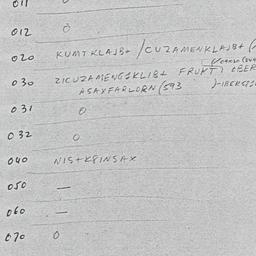 011
012 0
020 KUMTKLAJBt / CUZAMENKLAJBt
030 ZICUZAMENGIKLIBt FRUKT) OBER
ASAXFARLORN (593
031 0
032 0
040 NIStKRINSAX
050 —
060 —
070 0